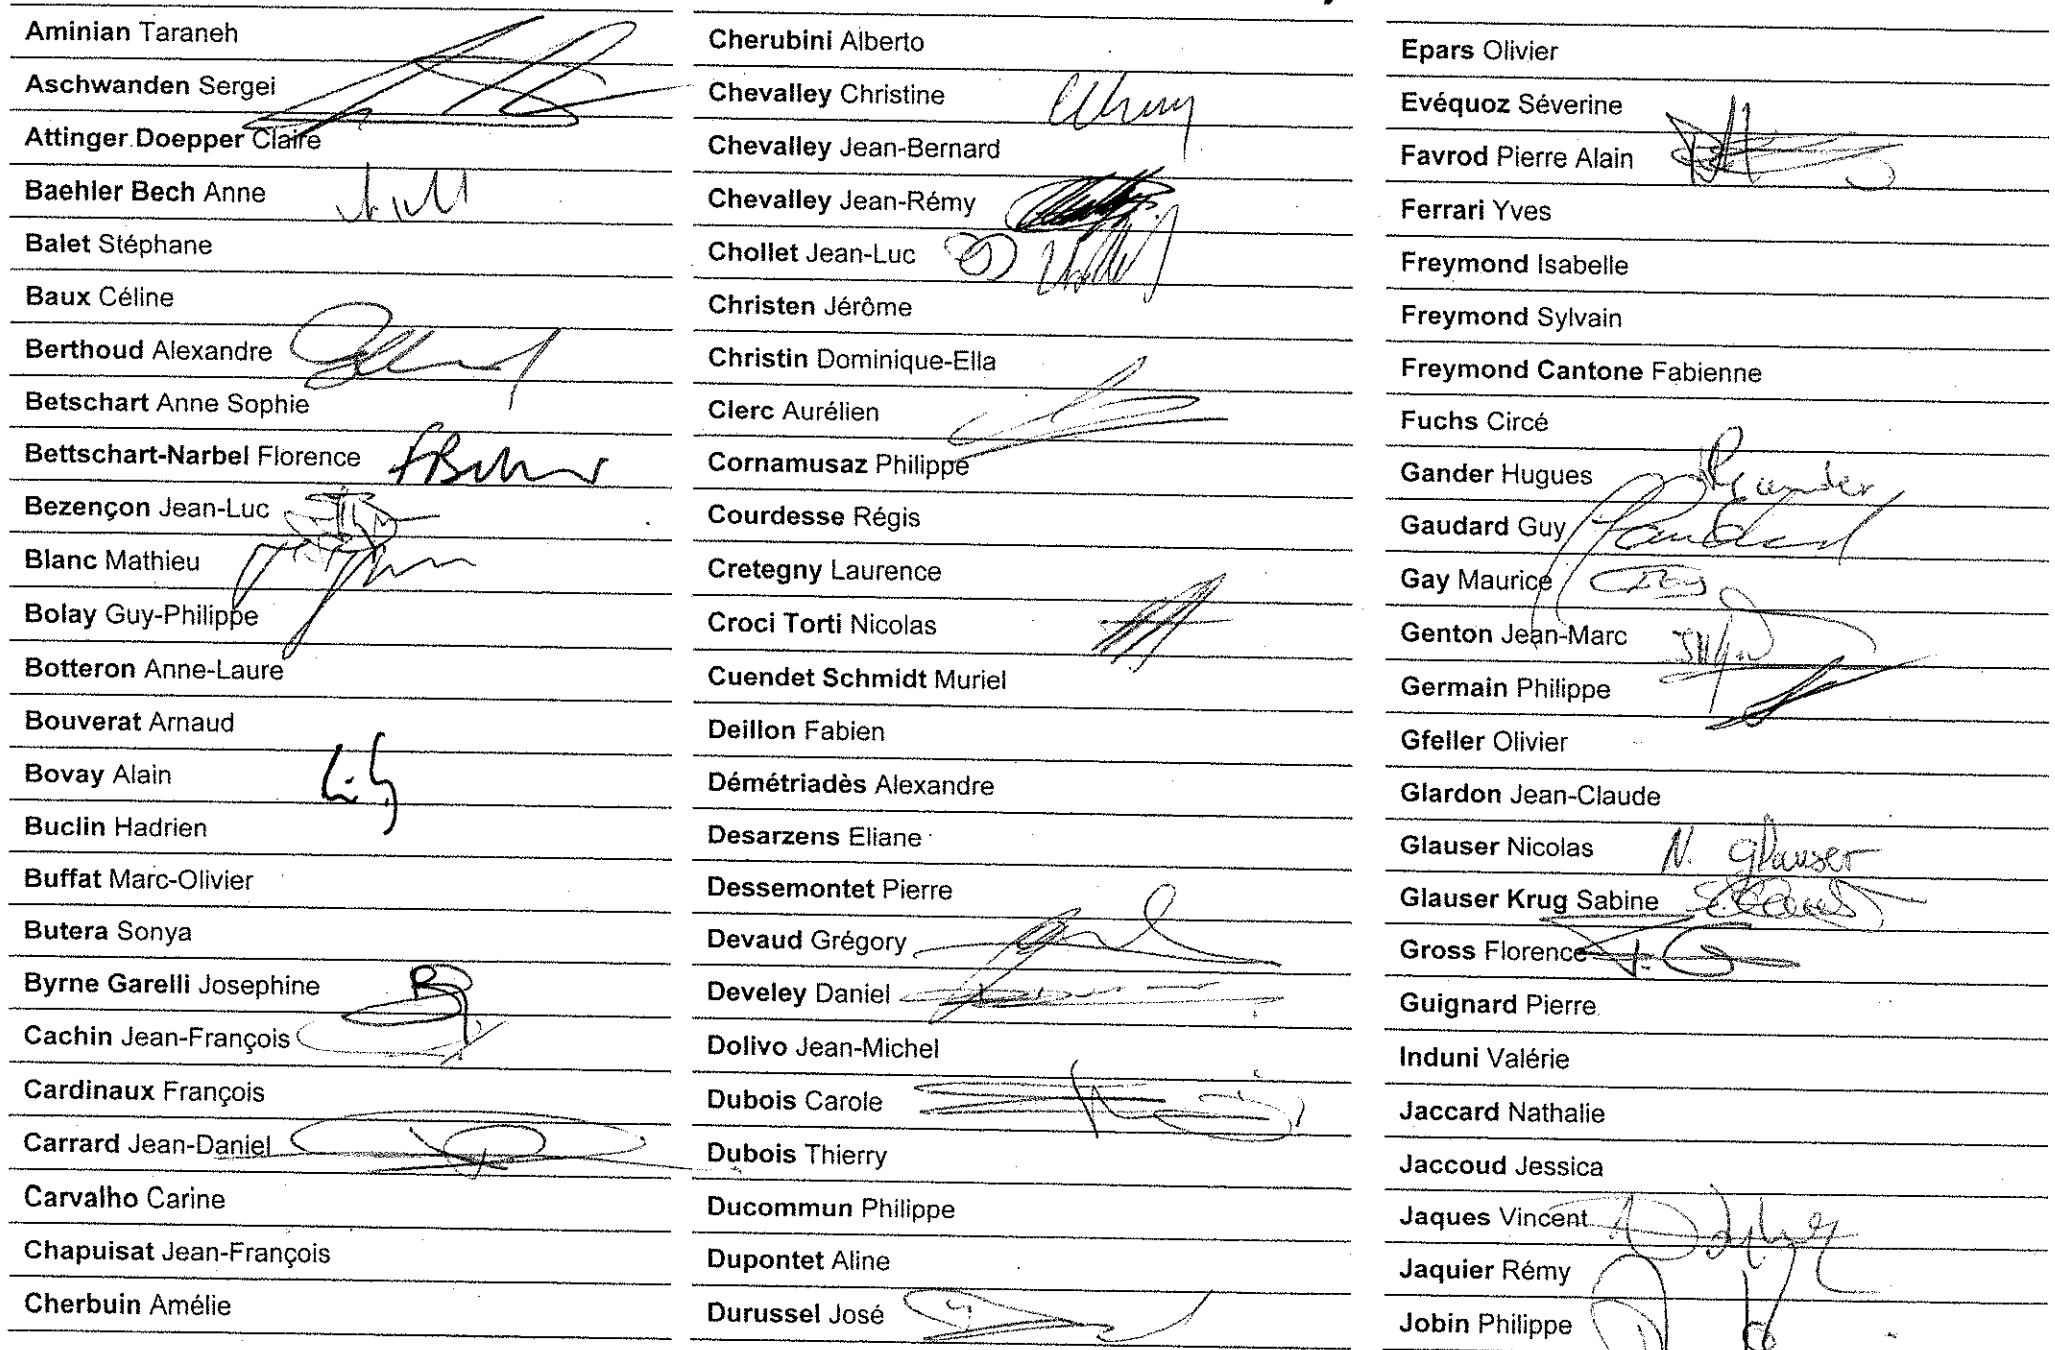 Aminian Taraneh
Aschwanden Sergei
Attinger Doepper Claire
Baehler Bech Anne
Balet Stéphane
Baux Céline
Berthoud Alexandre
Betschart Anne Sophie
Bettschart-Narbel Florence
Bezençon Jean-Luc
Blanc Mathieu
Bolay Guy-Philippe
Botteron Anne-Laure
Bouverat Arnaud
Bovay Alain
Buclin Hadrien
Buffat Marc-Olivier
Butera Sonya
Byrne Garelli Josephine
Cachin Jean-François
Cardinaux François
Carrard Jean-Daniel
Carvalho Carine
Chapuisat Jean-François
Cherbuin Amélie
Cherubini Alberto
Chevalley Christine
Chevalley Jean-Bernard
Chevalley Jean-Rémy
Chollet Jean-Luc
Christen Jérôme
Christin Dominique-Ella
Clerc Aurélien
Cornamusaz Philippe
Courdesse Régis
Cretegny Laurence
Croci Torti Nicolas
Cuendet Schmidt Muriel
Deillon Fabien
Démétriadès Alexandre
Desarzens Eliane
Dessemontet Pierre
Devaud Grégory
Develey Daniel
Dolivo Jean-Michel
Dubois Carole
Dubois Thierry
Ducommun Philippe
Dupontet Aline
Durussel José
Epars Olivier
Evéquoz Séverine
Favrod Pierre Alain
Ferrari Yves
Freymond Isabelle
Freymond Sylvain
Freymond Cantone Fabienne
Fuchs Circé
Gander Hugues
Gaudard Guy Gaudard
Gay Maurice
Genton Jean-Marc
Germain Philippe
Gfeller Olivier
Glardon Jean-Claude
Glauser Nicolas N. Glauser
Glauser Krug Sabine
Gross Florence F. G
Guignard Pierre
Induni Valérie
Jaccard Nathalie
Jaccoud Jessica
Jaques Vincent
Jaquier Rémy
Jobin Philippe